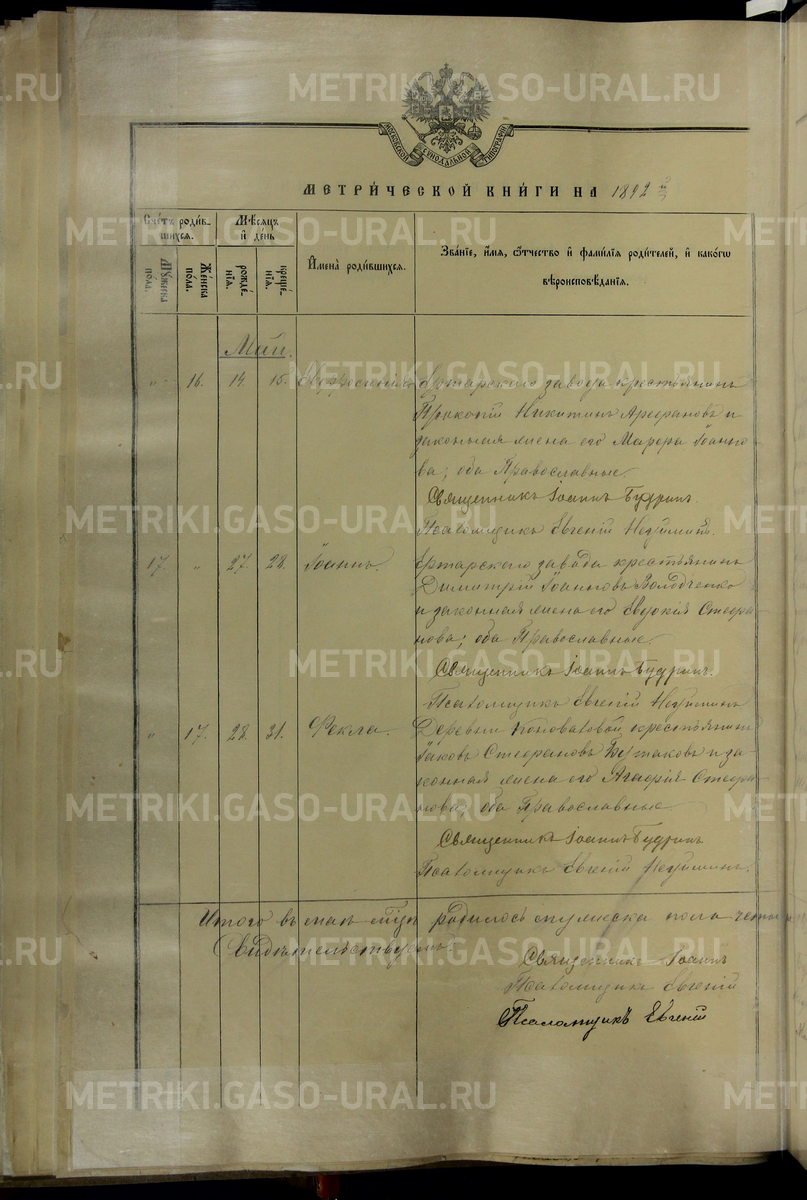 METRIKI.GASO-URAL.RU
МОСКОВСКОЙ СѴНОДАЛЬНОЙ ТИПОГРАФІИ
МЕТРИ́ЧЕСКОЙ КНИ́ГИ НА 1892
Сче́тъ роди́вшихся.
Мꙋ́жеска по́ла.
Же́нска по́ла.
Мѣ́сяцъ и҆ де́нь
рожде́нїѧ.
креще́нїѧ.
И҆мена̀ роди́вшихсѧ.
Зва́нїе, и҆́мѧ, ѻ҆́тчество и҆ фами́лїѧ роди́телей, и҆ како́гѡ
вѣроисповѣ́данїѧ.
Май.
" 16. 14 15. Артарскаго завода крестьянинъ
Прокопій Никитинъ и
законная жена его Іоанно-
ва; оба Православные.
Священникъ Іоаннъ Будринъ.
Псаломщикъ Евгеній
17. " 27. 28. Іоаннъ. Артарскаго завода крестьянинъ
Димитрій Іоанновъ Володченко
и законная жена его Евдокія Стефа
нова; оба Православные.
Священникъ Іоаннъ Будринъ.
Псаломщикъ Евгеній
" 17. 28. 31. Фекла. Деревни Коноваловой крестьянинъ
Іаковъ Стефановъ Бутаковъ и за-
конная жена его Агафія Стефа-
нова; оба Православные
Священникъ Іоаннъ Будринъ
Псаломщикъ Евгеній
Итого въ маѣ м-цѣ родилось мужеска пола четы
Свидѣтельствуемъ:
Священникъ Іоаннъ
Псаломщикъ Евгеній
Псаломщикъ Евгеній